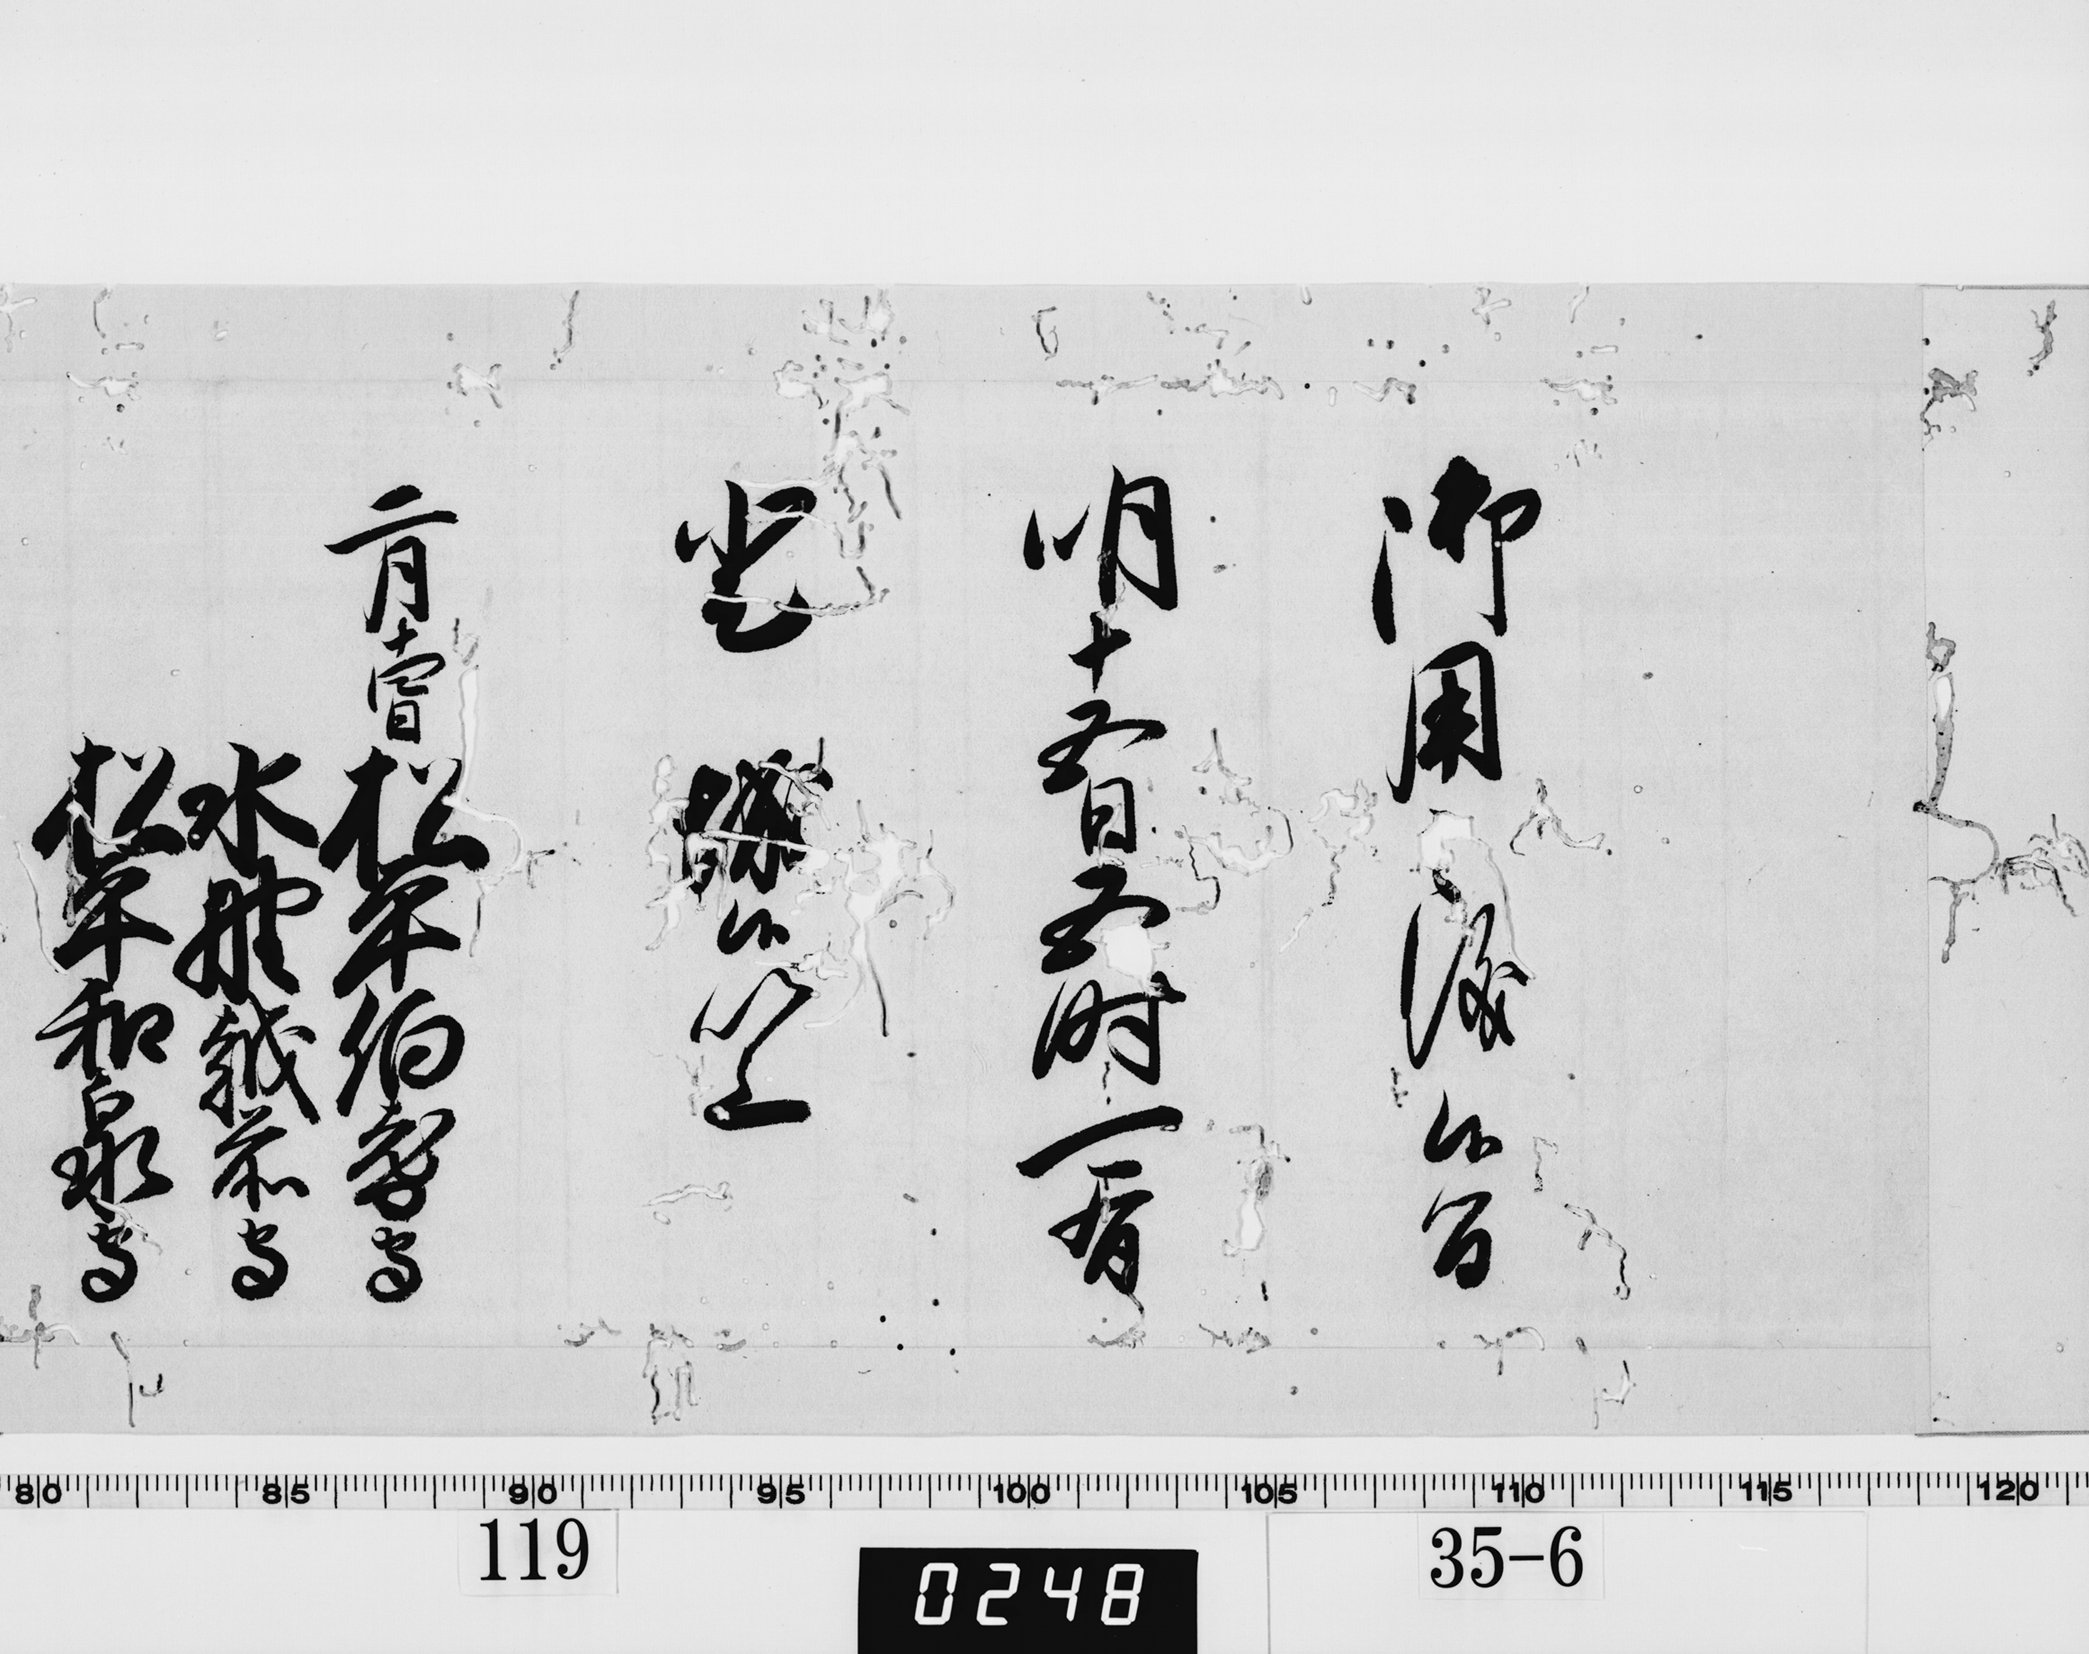 御用之儀候間
明十五日五時可有
登 城候以上
二月十四日 松平伯耆守
水野越前守
松平和泉守
80 85 90 95 100 105 110 115 120
119
0248
35-6